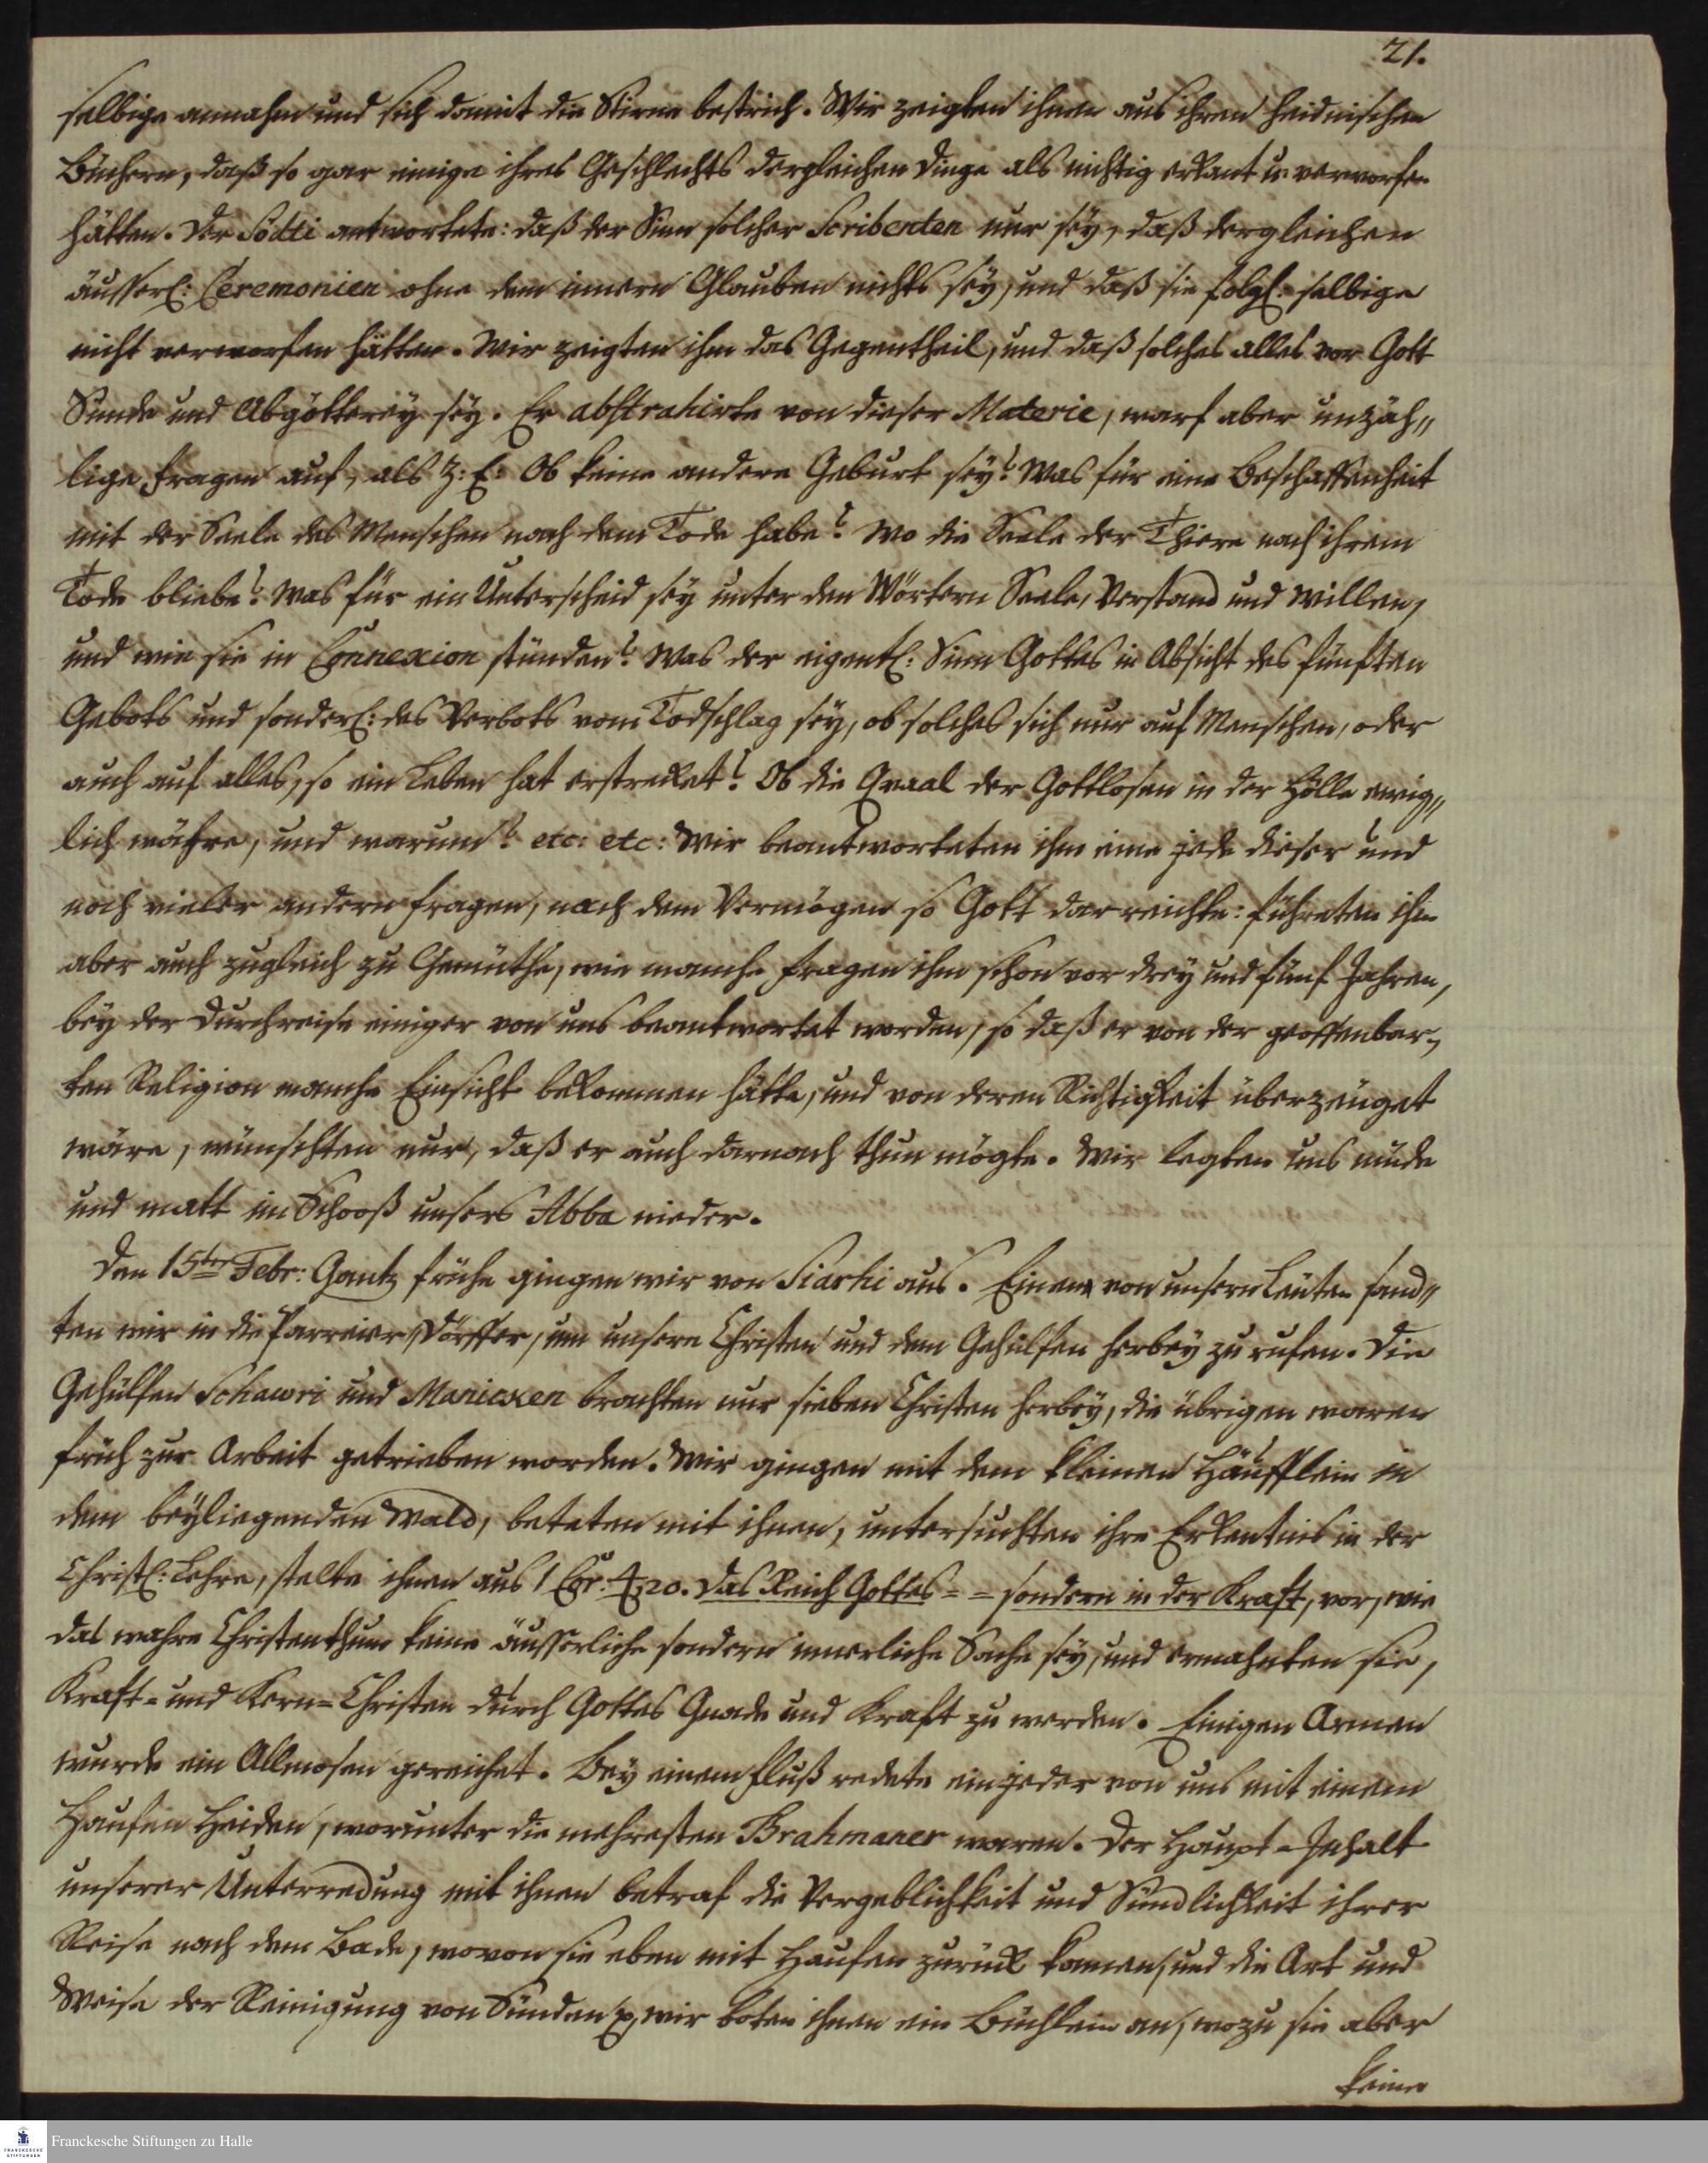 21.
selbige annahm und sich damit die Stirne bestrich. Wir zeigten ihnen aus ihren heidnischen
Büchern, daß so gar einige ihres Geschlechts dergleichen Dinge als nichtig erkant u. verworfen
hätten. Der Södti antwortete: daß der Sinn solcher Scribenten nur sey, daß dergleichen
äusserl: Ceremonien ohne dem innern Glauben nichts sey, und daß sie folgl: selbige
nicht verworfen hätten. Wir zeigten ihm das Gegentheil, und daß solches alles vor Gott
Sünde und Abgötterey sey. Er abstrahirte von dieser Materie, warf aber unzäh„
lige Fragen auf, als z: E: Ob keine andere Geburt sey? Was für eine Beschaffenheit
mit der Seele des Menschen nach dem Tode habe? Wo die Seele der Thiere nach ihrem
Tode bliebe? Was für ein Unterscheid sey unter den Wörtern Seele, Verstand und Willen,
und wie sie in Connexion stünden? Was der eigentl: Sinn Gottes in Absicht des fünften
Gebots und sonderl: des Verbots vom Todschlag sey, ob solches sich nur auf Menschen, oder
auch auf alles, so ein Leben hat erstrecket? Ob die Qvaal der Gottlosen in der Hölle ewig„
lich währe, und warum? etc: etc: Wir beantworteten ihm eine jede dieser und
noch vieler andern Fragen, nach dem Vermögen so Gott darreichte: führeten ihm
aber auch zugleich zu Gemüthe, wie manche Fragen ihm schon vor drey und fünf Jahren,
bey der Durchreise einiger von uns beantwortet worden, so daß er von der geoffenbar„
ten Religion manche Einsicht bekommen hätte, und von deren Richtigkeit überzeuget
wäre, wünschten nur, daß er auch darnach thun mögte. Wir legten uns müde
und matt im Schooß unsers Abba nieder.
Den 15ten Febr: Gantz frühe gingen wir von Siarhi aus. Einen von unsern Leuten sand„
ten wir in die Parreier Dörffer, um unsere Christen und dem Gehülfen herbey zu rufen. Die
Gehülfen Schawri und Manicken brachten nur sieben Christen herbey, die übrigen waren
früh zur Arbeit getrieben worden. Wir gingen mit dem kleinen Häufflein in
dem beyliegenden Wald, beteten mit ihnen, untersuchten ihre Erkentnis in der
Christl: Lehre, stelte ihnen aus 1 Cor: 4, 20. Das Reich Gottes = = sondern in der Kraft, vor, wie
das wahre Christenthum keine äusserliche sondern innerliche Sache sey, und ermahnten sie,
Kraft= und Kern=Christen durch Gottes Gnade und Kraft zu werden. Einigen Armen
wurde ein Allmosen gereichet. Bey einem Fluß redete ein jeder von uns mit einem
Haufen Heiden, worunter die mehresten Brahmaner waren. Der Haupt=Inhalt
unserer Unterredung mit ihnen betraf die Vergeblichkeit und Sündlichkeit ihrer
Reise nach dem Bade, wovon sie eben mit Haufen zurück kamen, und die Art und
Weise der Reinigung von Sünden, wir boten ihnen ein Büchlein an, wozu sie aber
keine
Franckesche Stiftungen zu Halle